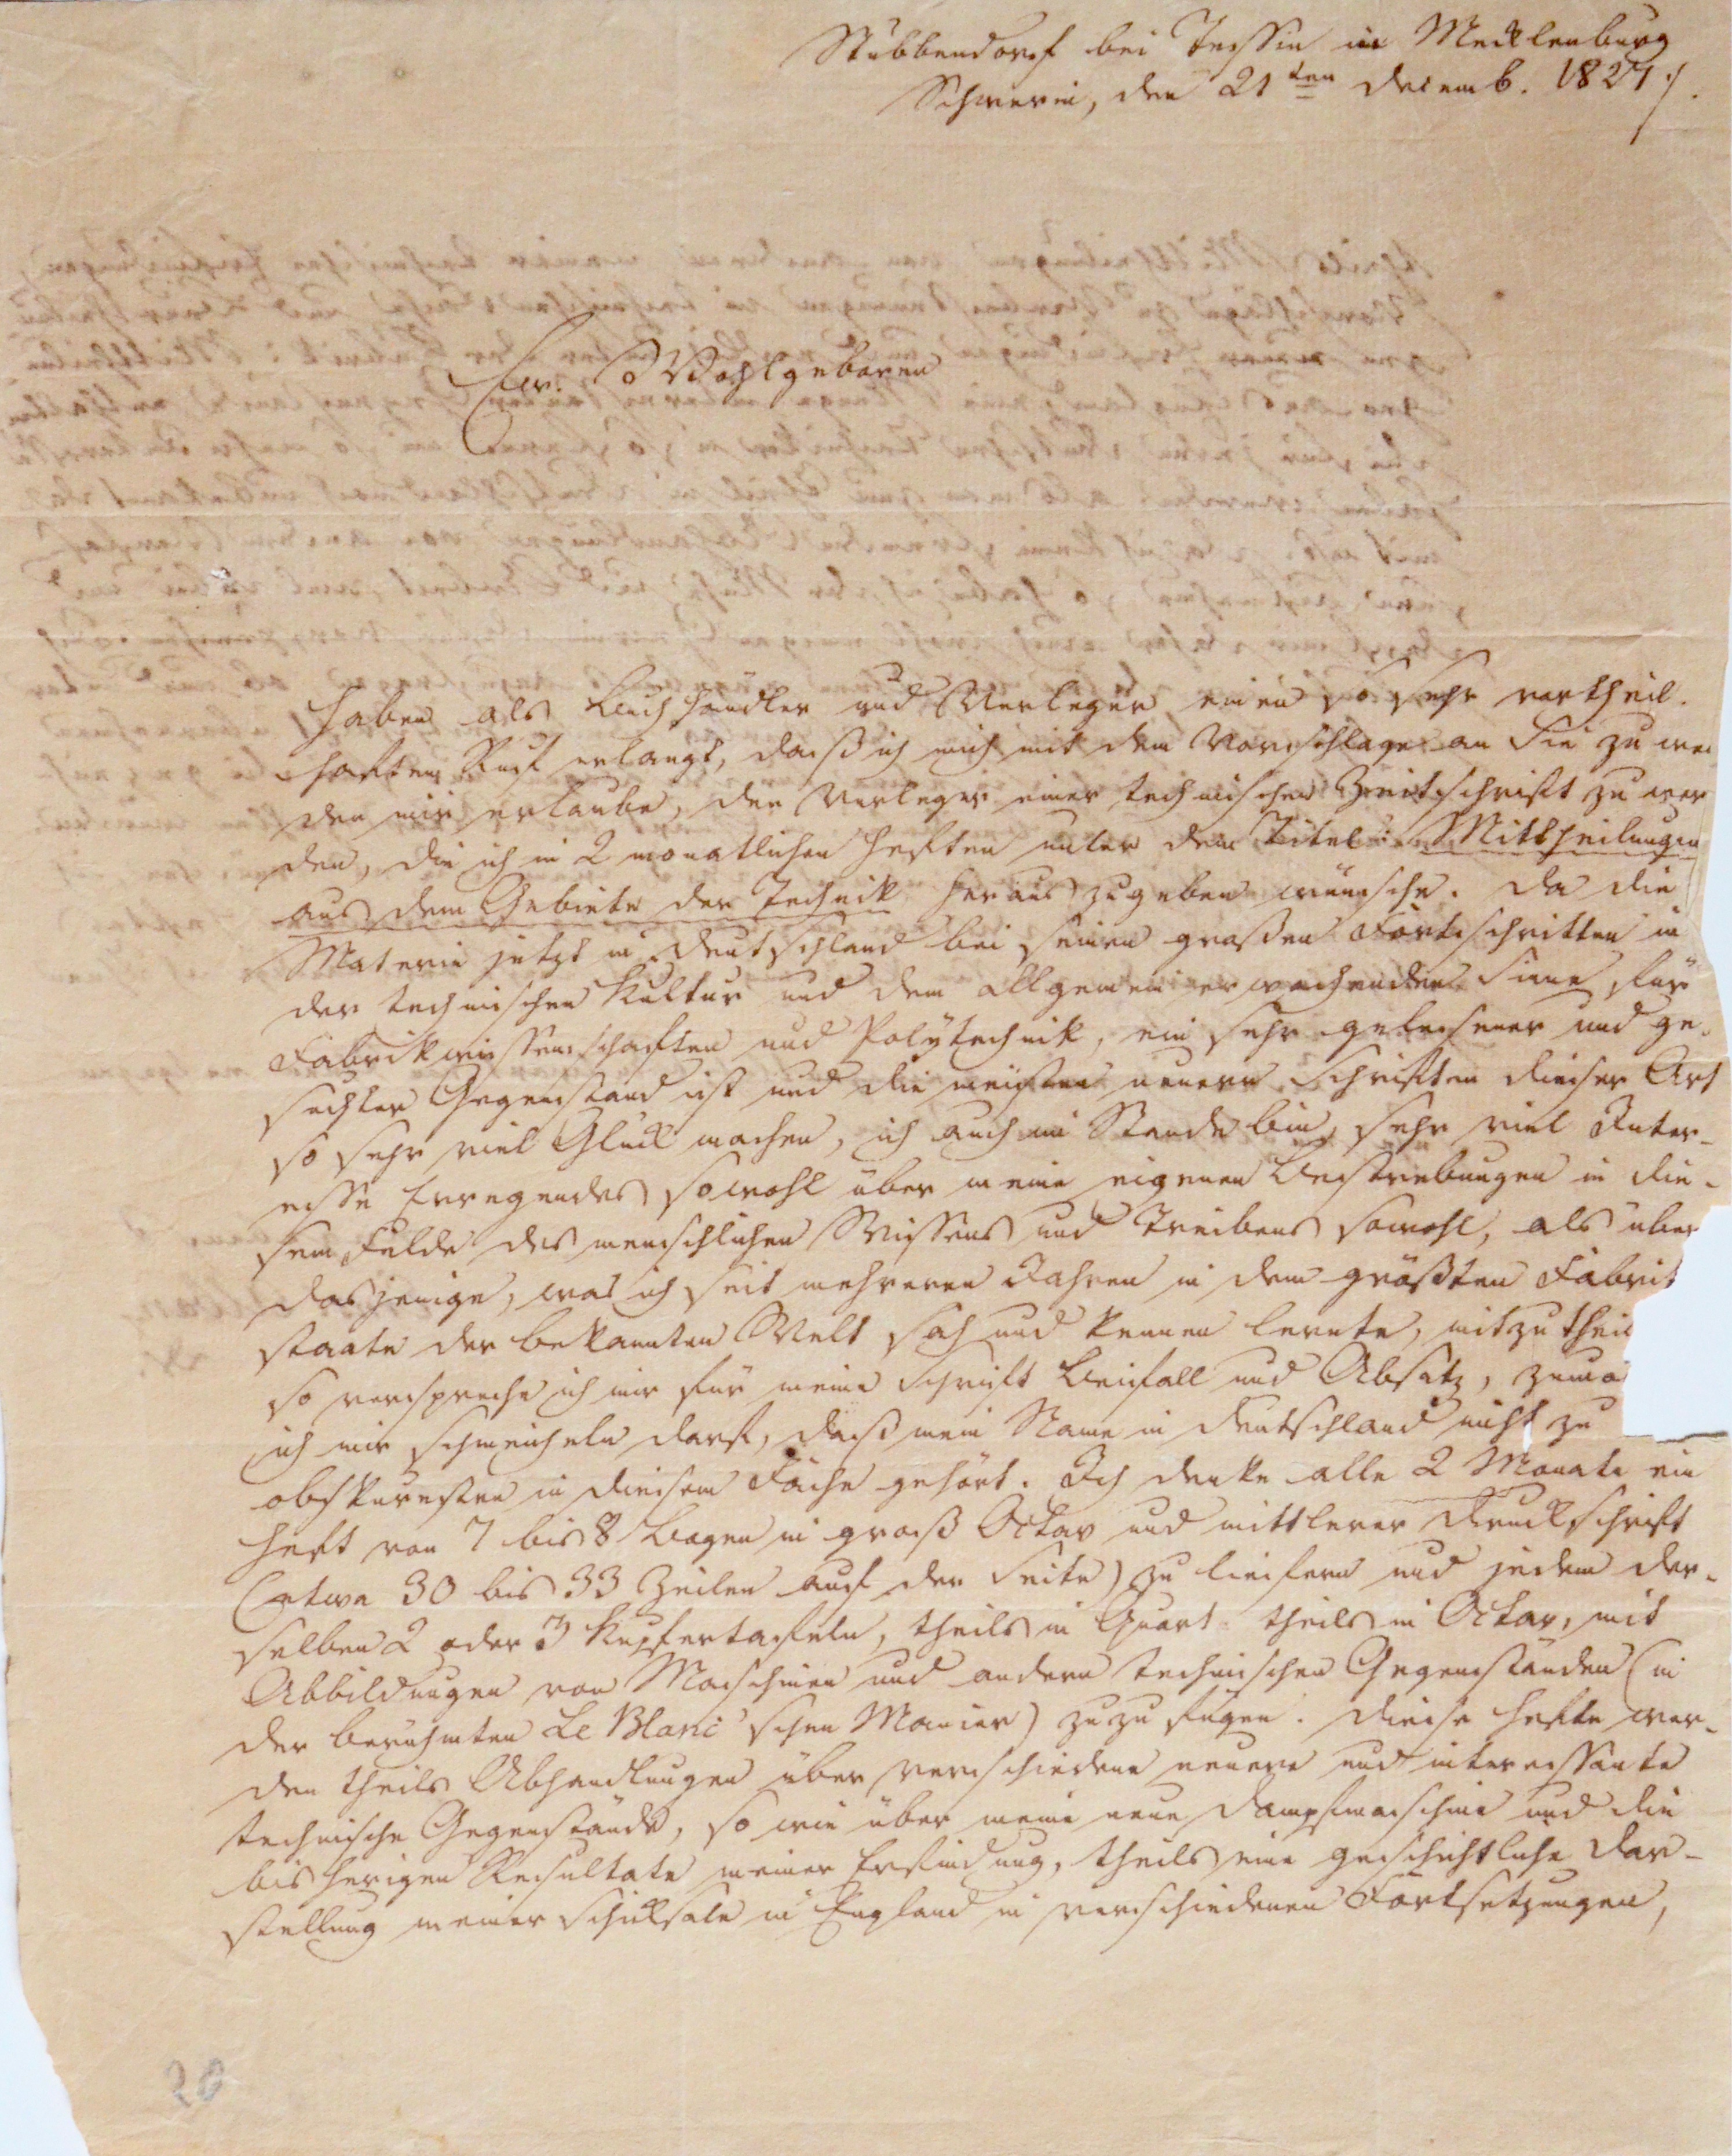 Stubbendorf bei Tessin in Mecklenburg
Schwerin, den 21ten Decemb. 1827.
Ew. Wohlgeboren
haben als Buchhändler und Verleger einen so sehr vortheil-
haften Ruf erlangt, daß ich mich mit dem Vorschlage an Sie zu wen
den mir erlaube, der Verleger einer technischen Zeitschrift zu wer
den, die ich in 2 monatlichen Heften unter dem Titel: Mittheilungen
aus dem Gebiete der Technik herauszugeben wünsche. Da die
Materie jetzt in Deutschland bei seinen großen Fortschritten in
der technischen Kultur und dem allgemein erwachenden Sinne für
Fabrikwissenschaften und Polytechnik, ein sehr gelesener und ge-
suchter Gegenstand ist und die meisten neuern Schriften dieser Art
so sehr viel Glück machen, ich auch im Stande bin, sehr viel Inter-
esse Erregendes sowohl über meine eigenen Bestrebungen in die-
sem Felde des menschlichen Wissens und Treibens sowohl, als über
dasjenige, was ich seit mehreren Jahren in dem größten Fabrik
staate der bekannten Welt sah und kennen lernte, mitzutheil
so verspreche ich mir für meine Schrift Beifall und Absatz, zuma
ich mir schmeicheln darf, daß mein Name in Deutschland nicht zu
obskuresten in diesem Fache gehört. Ich denke alle 2 Monate ein
Heft von 7 bis 8 Bogen in groß Octav und mittlerer Druckschrift
(etwa 30 bis 33 Zeilen auf der Seite) zu liefern und jedem der-
selben 2 oder 3 Kupfertafeln, theils in Quart theils in Octav, mit
Abbildungen von Maschinen und andern technischen Gegenständen (in
der berühmten Le Blanc'schen Manier) zuzufügen. Diese Hefte wer-
den theils Abhandlungen über verschiedene neuere und interessante
technische Gegenstände, so wie über meine neue Dampfmaschine und die
bisherigen Resultate meiner Erfindung, theils eine geschichtliche Dar-
stellung meiner Schicksale in England in verschiedenen Fortsetzungen,
20